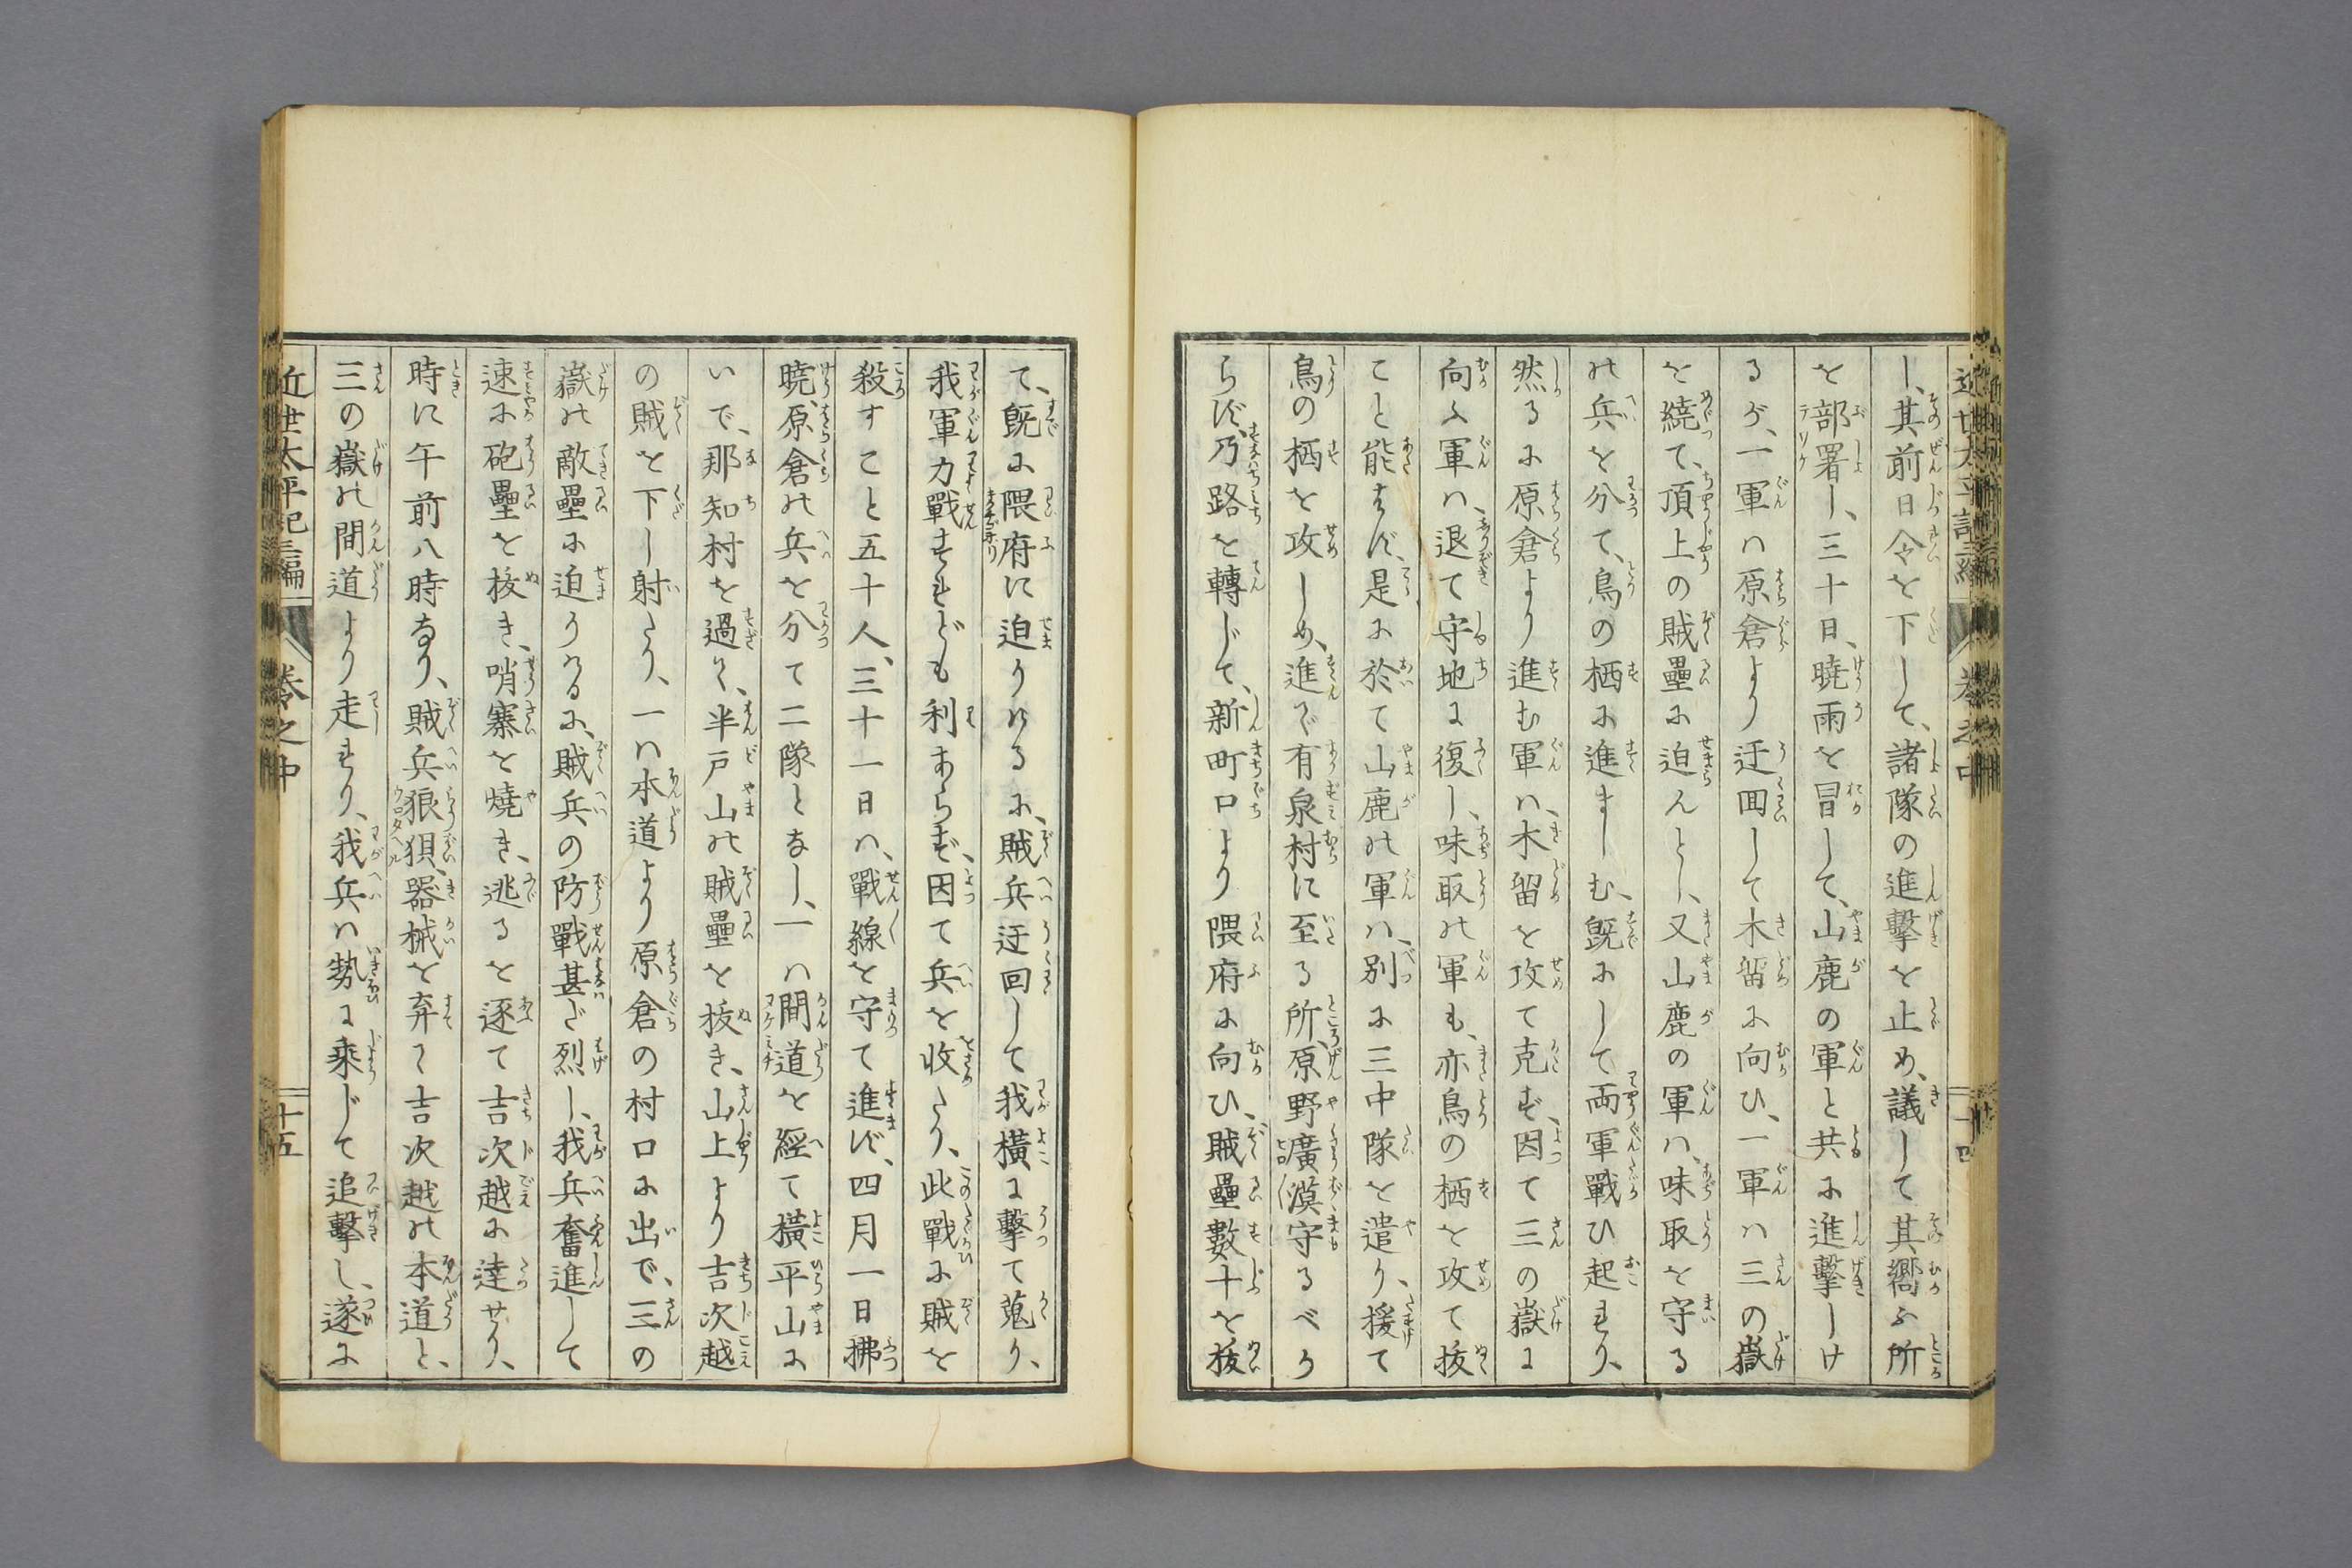 し、其前日令を下して、諸隊の進擊を止め、議して其嚮ふ所
を部署し、三十日、曉雨を冒して、山鹿の軍と共に進擊しけ
るが、一軍ハ原倉より迂囬して木留に向ひ、一軍ハ三の嶽
を繞て、頂上の賊壘に迫らんとし、又山鹿の軍ハ、味取を守る
の兵を分て、鳥の栖に進ましむ、既にして両軍戰ひ起れり、
然るに原倉より進む軍ハ、木留を攻て克ず、因て三の嶽に
向ふ軍ハ、退て守地に復し、味取の軍も、亦鳥の栖を攻て拔
こと能はず、是に於て山鹿の軍ハ、別に三中隊を遣り、援て
鳥の栖を攻しめ、進で有泉村に至る所、原野廣漠守るべか
らず、乃路を轉じて、新町口より隈府に向ひ、賊壘數十を拔
て、既に隈府に迫りけるに、賊兵迂回して我横に擊て蒐り、
我軍力戰すれども利あらず、因て兵を收たり、此戰に賊を
殺すこと五十人、三十一日ハ、戰線を守て進まず、四月一日拂
曉、原倉の兵を分て二隊となし、一ハ間道を經て横平山に
いで、那知村を過て、半戸山の賊壘を拔き、山上より吉次越
の賊を下し射たり、一ハ本道より原倉の村口に出で、三の
嶽の敵壘に迫りけるに、賊兵の防戰甚だ烈し、我兵奮進して
速に砲壘を拔き、哨寨を燒き、逃るを逐て吉次越に達せり、
時に午前八時なり、賊兵狼狽、器械を弃て吉次越の本道と、
三の嶽の間道より走れり、我兵ハ勢に乘じて追擊し、遂に
近世太平記三編 卷之中 十五